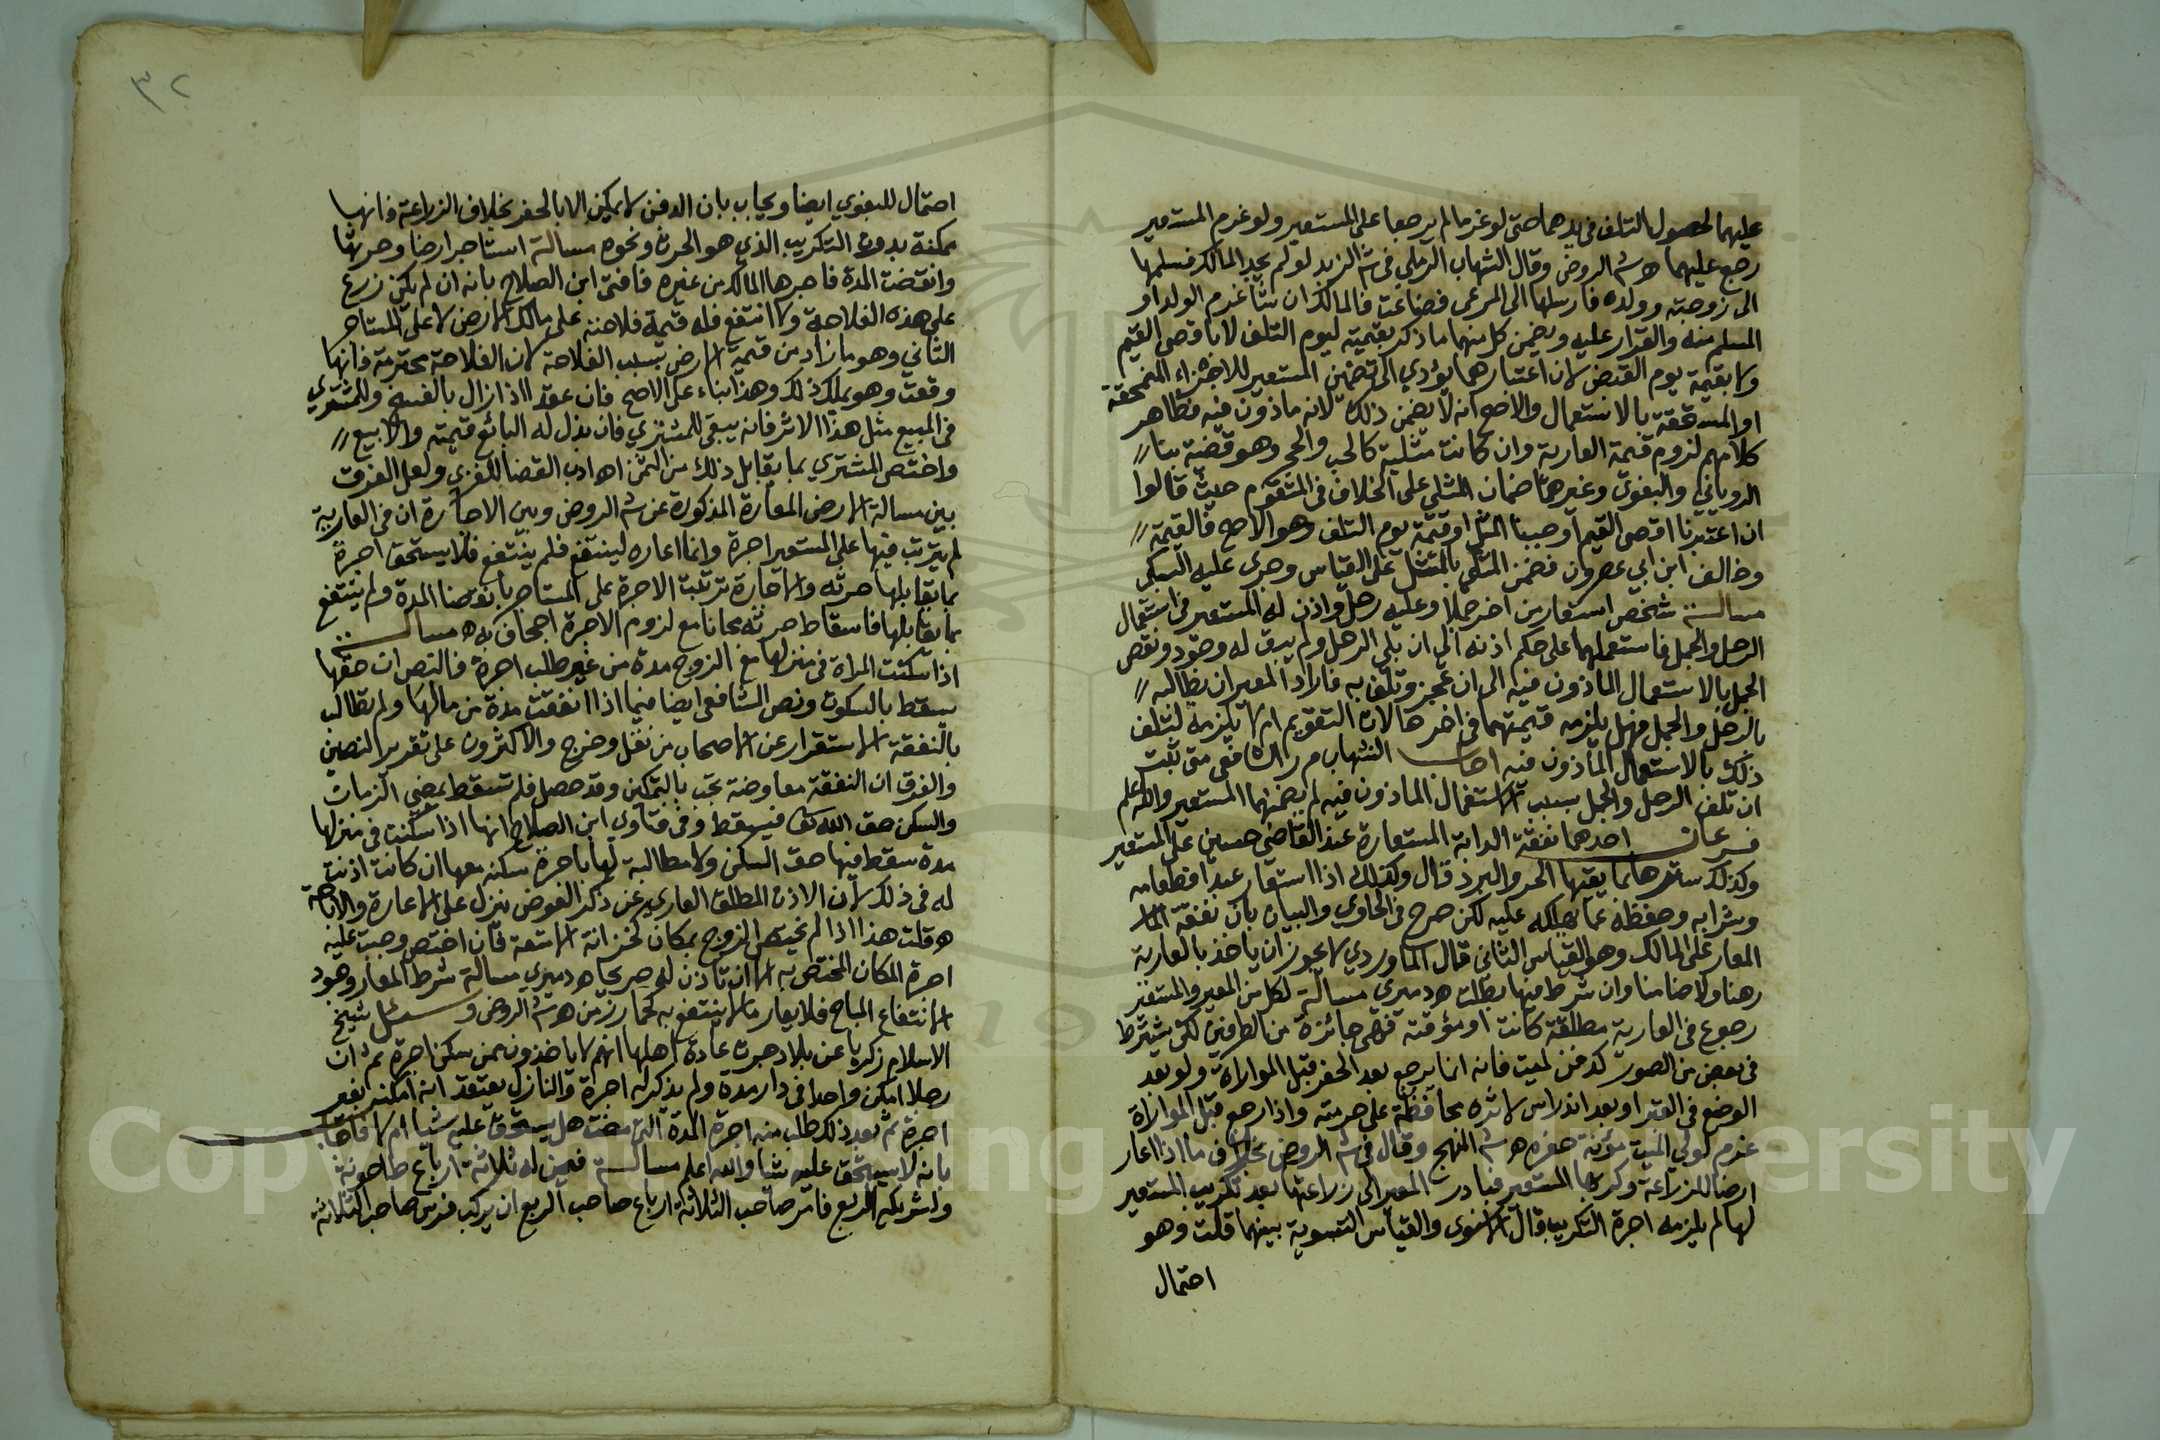 عليهما لحصول التلف في يدهما حتى لو غرما لم يرجعا على المستعير ولو غرم المستعير
رجع عليهما ه ش الروض وقال الشهاب الرملي في ش الزبد لو لم يجد المالك فسلمها
الى زوجته وولده فارسلها الى المرعى فضاعت فالمالك ان شا غرم الولد او
المسلم منه والقرار عليه ويضمن كل منهما ما ذكر بقيمته ليوم التلف لا باقصى القيم
ولا بقيمة يوم القبض لان اعتبارهما يؤدي الى تضمين المستعير للاجزاء المنمحقة
او المنسحقة بالاستعمال والاصح انه لا يضمن ذلك لانه ماذون فيه فظاهر
كلامهم لزوم قيمة العارية وان كانت مثلية كالحب والحجر وهو قضية بنا
الروياني والبغوي وغيرهما ضمان المثلي على الخلاف في المتقوم حيث قالوا
ان اعتبرنا اقصى القيم اوجبنا المثل او قيمة يوم التلف وهو الاصح فالقيمة
وخالف ابن ابي عصرون فضمن المثلي بالمثل على القياس وجرى عليه السبكي
مسالة شخص استعار من اخر جملا وعليه رحل واذن له المستعير في استعمال
الرحل والجمل فاستعملهما على حكم اذنه الى ان بلي الرحل ولم يبق له وجود ونقص
الجمل بالاستعمال الماذون فيه الى ان عجز وتلف به فاراد المعير ان يطالبه
بالرحل والجمل فهل يلزمه قيمتهما في اخر حالات التقويم ام لا يلزمه لتلف
ذلك بالاستعمال الماذون فيه اجاب الشهاب م ر الشافعي متى ثبت
ان تلف الرحل والجمل بسبب الاستعمال الماذون فيه لم يضمنهما المستعير والله اعلم
فرعان احدهما نفقة الدابة المستعارة عند القاضي حسين على المستعير
وكذلك سترها بما يقيها الحر والبرد قال وكذلك اذا استعار عبدا فطعامه
وشرابه وحفظه عما يهلكه عليه لكن صرح في الحاوي والبيان بان نفقة
المعار على المالك وهو القياس الثاني قال الماوردي لا يجوز ان ياخذ بالعارية
رهنا ولا ضامنا وان شرط فيها بطلت ه دميري مسالة لكل من المعير والمستعير
رجوع في العارية مطلقة كانت او مؤقتة فهي جائزة من الطرفين لكن يشترط
في بعض من الصور كدفن لميت فانه انما يرجع بعد الحفر قبل المواراة ولو بعد
الوضع في القبر او بعد اندراس لاثره محافظة على حرمته واذا رجع قبل المواراة
غرم لولي الميت مؤنة حفره ه ش المنهج وقال في ش الروض بخلاف ما اذا اعار
ارضا للزراعة وكربها المستعير فبادر المعير الى زراعتها بعد تكريب المستعير
لها لم يلزمه اجرة التكريب قال الاسنوي والقياس التسوية بينهما قلت وهو
احتمال
٣٢
احتمال للبغوي ايضا ويجاب بان الدفن لا يمكن الا بالحفر بخلاف الزراعة فانها
ممكنة بدون التكريب الذي هو الحرث ونحوه مسالة استاجر ارضا وحرثها
وانقضت المدة فاجرها المالك من غيره فافتى ابن الصلاح بانه ان لم يكن زرع
على هذه الفلاحة ولا انتفع فله قيمة فلاحته على مالك الارض لا على المستاجر
الثاني وهو ما زاد من قيمة الارض بسبب الفلاحة لان الفلاحة محترمة فانها
وقعت وهو يملك ذلك وهذا بناء على الاصح فان عقد الذا زال بالفسخ وللمشتري
في المبيع مثل هذا الاثر فانه يبقى للمشتري فان بذل له البائع قيمته والا بيع
واختص المشتري بما يقابل ذلك من الثمن اه ادب القضا للغزي ولعل الفرق
بين مسالة الارض المعارة المذكورة عن ش الروض وبين الاجارة ان في العارية
لم يترتب فيها على المستعير اجرة وانما اعاره لينتفع فلم ينتفع فلا يستحق اجرة
بما يقابلها حرثه والاجارة ترتبت الاجرة على المستاجر بانقضا المدة ولم ينتفع
بما يقابلها فاسقاط حرثه مجانا مع لزوم الاجرة اجحاف به ه مسالة
اذا سكنت المراة في منزلها مع الزوج مدة من غير طلب اجرة فالنص ان حقها
يسقط بالسكوت ونص الشافعي ايضا فيما اذا انفقت مدة من مالها ولم تطالب
بالنفقة الاستقرار عن الاصحاب من نقل وخرج والاكثرون على تقرير النصين
والفرق ان النفقة معاوضة تجب بالتمكين وقد حصل فلم تسقط بمضي الزمان
والسكن حق الله تعا فيسقط وفي فتاوي ابن الصلاح انها اذا سكنت في منزلها
مدة سقط فيها حق السكن ولا مطالبة لها باجرة سكنه معها ان كانت اذنت
له في ذلك لان الاذن المطلق العاري عن ذكر العوض ينزل على الاعارة والاباحة
ه قلت هذا اذا لم يختص الزوج بمكان كخزانة الامتعة فان اختص وجبت عليه
اجرة المكان المختص به الا ان تاذن له صريحا ه دميري مسالة شرط المعار وجود
الانتفاع المباح فلا يعار ما لا ينتفع به كحمار زمن ه ش الروض وسئل شيخ
الاسلام زكريا عن بلاد جرت عادة اهلها انهم لا ياخذون ممن سكن اجرة ثم ان
رجلا امكن واحدا في دار مدة ولم يذكر له اجرة والنازل يعتقد انه امكنه بغير
اجرة ثم بعد ذلك طلب منه اجرة المدة التي مضت هل يستحق عليه شيا ام لا فاجاب
بانه لا يستحق عليه شيا والله اعلم مسالة فيمن له ثلاثة ارباع طاحونة
ولشريكه الربع فامر صاحب الثلاثة ارباع صاحب الربع ان يركب فرس صاحب الثلاثة